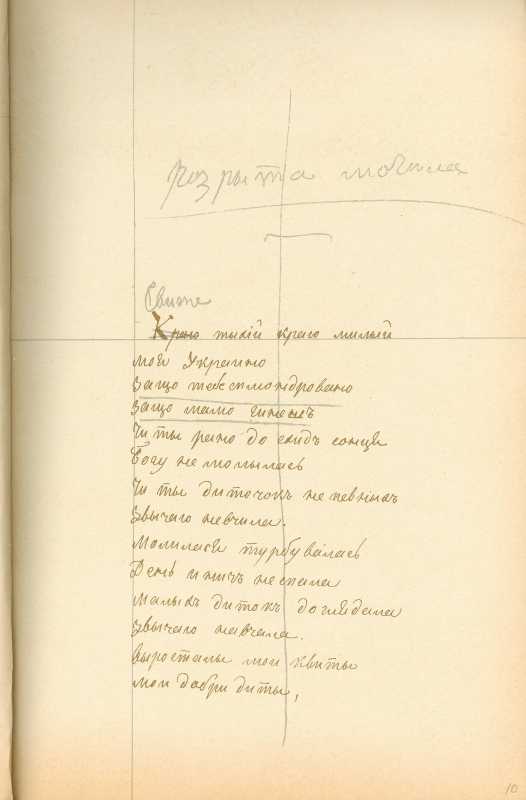 розрыта могила
Свите
Краю тыхій краю милый
моя Украино
Защо тебе сплюндровано
Защо мамо гинешъ
Чи ты рано до схидъ сонця
Богу не молылась
Чи ты диточокъ непевныхъ
Звычаю невчила.
Молилася турбувалась
День и ничъ неспала
Малыхъ дитокъ доглядала
Звычаю навчала.
Выросталы мои квиты
мои добри диты,
10